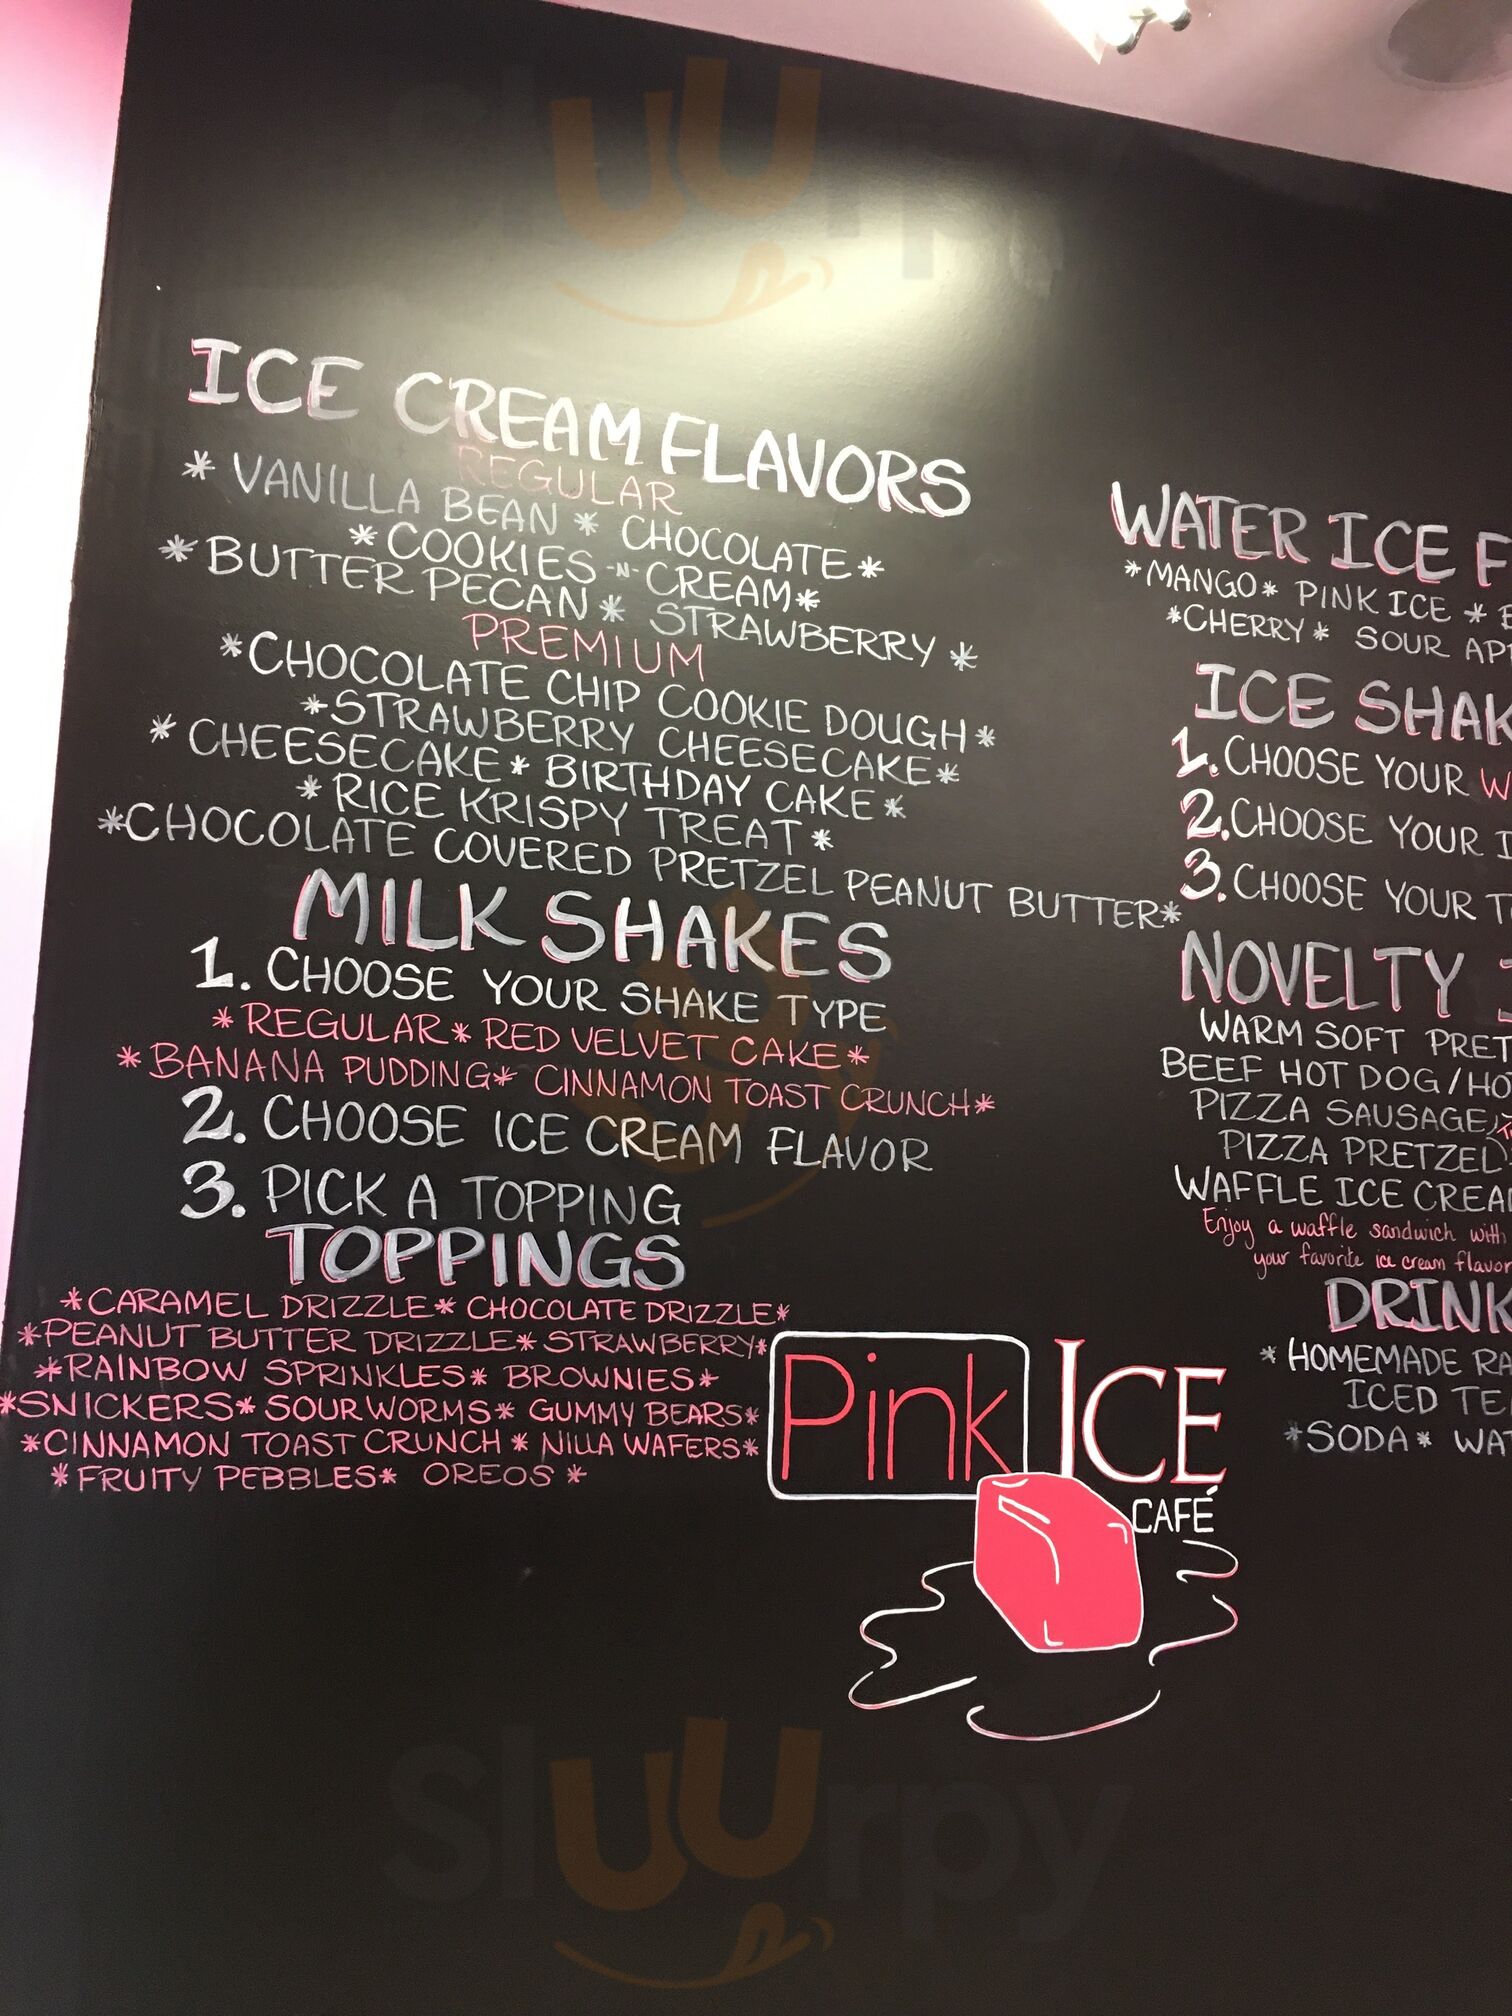 ICE CREAM FLAVORS
REGULAR
* VANILLA BEAN * CHOCOLATE *
* COOKIES -N- CREAM *
* BUTTER PECAN * STRAWBERRY *
PREMIUM
* CHOCOLATE CHIP COOKIE DOUGH *
* STRAWBERRY CHEESECAKE *
* CHEESECAKE * BIRTHDAY CAKE *
* RICE KRISPY TREAT *
* CHOCOLATE COVERED PRETZEL PEANUT BUTTER *
MILK SHAKES
1. CHOOSE YOUR SHAKE TYPE
* REGULAR * RED VELVET CAKE *
* BANANA PUDDING * CINNAMON TOAST CRUNCH *
2. CHOOSE ICE CREAM FLAVOR
3. PICK A TOPPING
TOPPINGS
* CARAMEL DRIZZLE * CHOCOLATE DRIZZLE *
* PEANUT BUTTER DRIZZLE * STRAWBERRY *
* RAINBOW SPRINKLES * BROWNIES *
* SNICKERS * SOUR WORMS * GUMMY BEARS *
* CINNAMON TOAST CRUNCH * NILLA WAFERS *
* FRUITY PEBBLES * OREOS *
Pink ICE
CAFÉ
WATER ICE F
* MANGO * PINK ICE *
* CHERRY * SOUR AP
ICE SHAK
1. CHOOSE YOUR W
2. CHOOSE YOUR I
3. CHOOSE YOUR T
NOVELTY I
WARM SOFT PRET
BEEF HOT DOG / HO
PIZZA SAUSAGE
PIZZA PRETZEL
WAFFLE ICE CREA
Enjoy a waffle sandwich with
your favorite ice cream flavor
DRINK
* HOMEMADE RA
ICED TE
* SODA * WAT
sluurpy
sluurpy